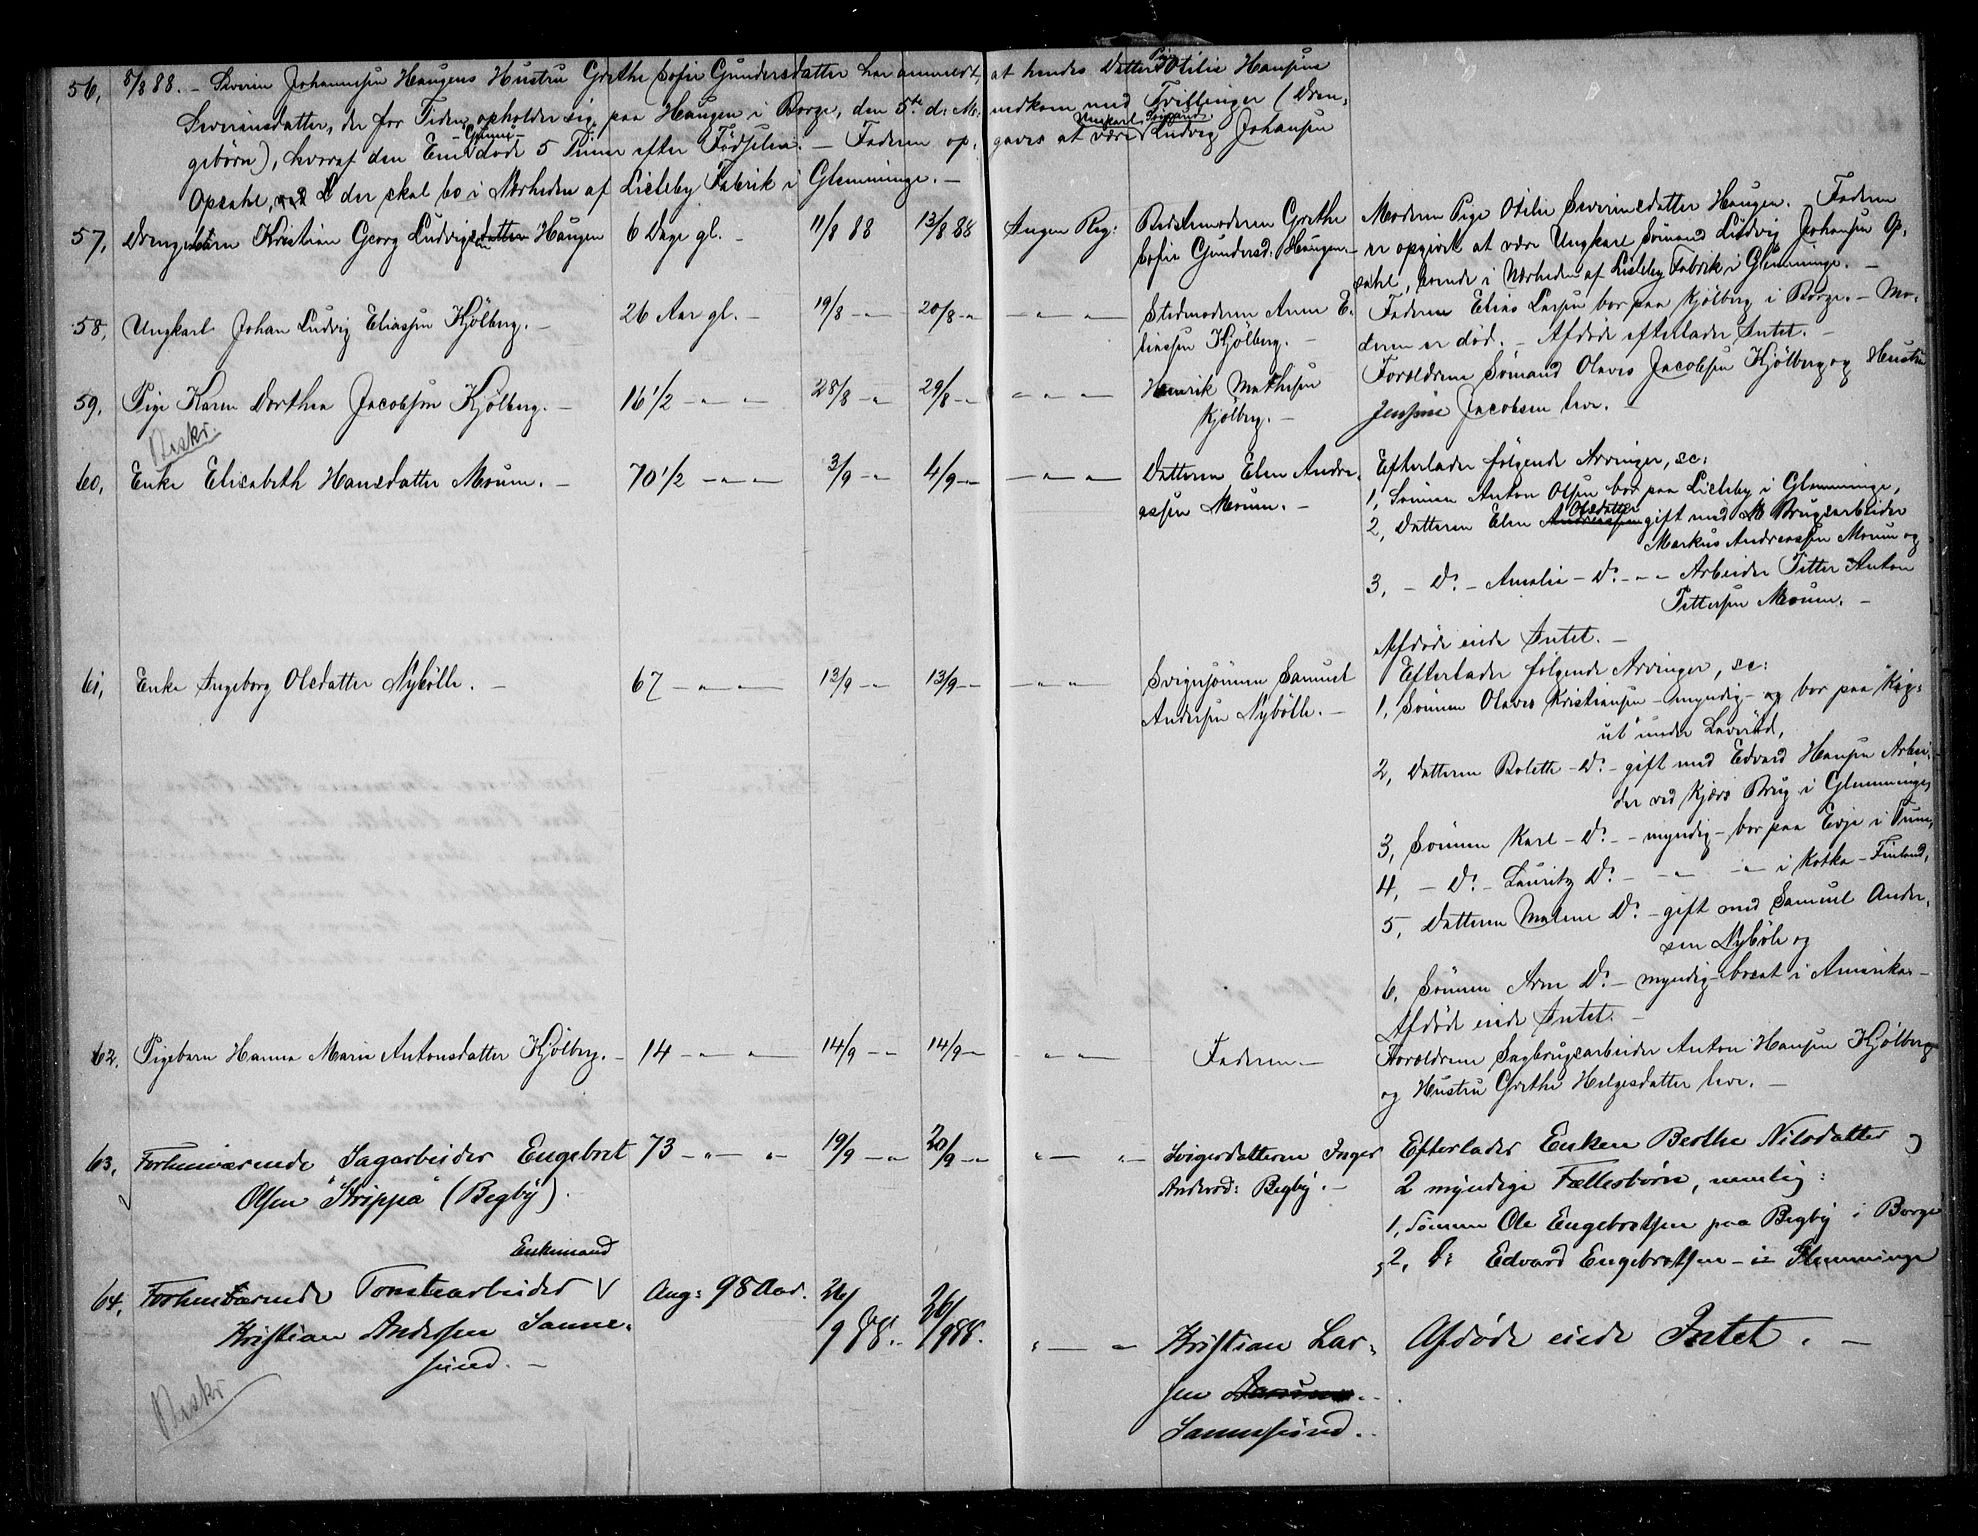 56, 8/8 88. – Severin Johannesen Haugens Hustru Grethe Sofie Gundersdatter har anmeldt, at hendes Datter Pige Otilie Hansine
Severinsdatter, der for Tiden opholder sig paa Haugen i Borge, den 5te d: M: nedkom med Tvillinger (Dren-
gebörn), hvoraf den Ene döde 5 Timer efter Fødselen. – Faderen op- gaves at være Ungkarl Sömand Ludvig Johansen
Opsahl, der skal bo i Nærheden af Lisleby Fabrik i Glemminge. –
57, Drengebarn Kristian Georg Ludvigsen Haugen 6 Dage gl. – 11/8 88 13/8 88 Ingen Reg: Bedstemoderen Grethe
Sofie Gundersd: Haugen –
Moderen Pige Otilie Severinsdatter Haugen. – Faderen
er opgivet at være Ungkarl Sömand Ludvig Johansen Op-
sahl, boende i Nærheden af Lisleby Fabrik i Glemminge. –
58, Ungkarl Johan Ludvig Eliassen Kjölberg. – 26 Aar gl. – 19/8 –„ 20/8 –„ –„–„– Stedmoderen Anne E-
liassen Kjölberg. –
Faderen Elias Larsen bor paa Kjölberg i Borge. – Mo-
deren er död. – Afdöde efterlader Intet. –
59, Pige Karen Dorthea Jacobsen Kjölberg. – 16 1/2 –„– 28/8 –„ 29/8 –„ –„–„– Henrik Mathisen
Kjölberg. –
Forældrene Sömand Olaves Jacobsen Kjölberg og Hustru
Jensine Jacobsen leve. –
Beskr.
60, Enke Elisabeth Hansdatter Moum. – 70 1/2 –„– 3/9 –„ 4/9 –„ –„–„– Datteren Elen Andre-
assen Moum. –
Efterlader følgende Arvinger, sc:
1, Sönnen Anton Olsen bor paa Lisleby i Glemminge,
2, Datteren Elen Andreassen Olsdatter gift med Brugsarbeider
Markus Andreassen Moum og
3, – Do – Amalie – Do – „ – Arbeider Petter Anton
Pettersen Moum. –
Afdöde eiede Intet. –
61, Enke Ingeborg Olsdatter Nybölle. – 67 –„– 13/9 –„ 13/9 –„ –„–„– Svigersönnen Samuel
Andersen Nybölle. –
Efterlader følgende Arvinger, sc:
1, Sönnen Olaves Kristiansen – myndig – og bor paa Kig-
ut under Laveröd,
2, Datteren Bolette – Do – gift med Edvard Hansen Arbei-
der ved Kjærs Brug i Glemminge,
3, Sönnen Karl – Do – myndig – bor paa Evje i Tune,
4, – Do – Lauritz Do – „ – „ – i Kotka – Finland,
5, Datteren Malene Do – gift med Samuel Ander-
sen Nyböle og
6, Sönnen Arne Do – myndig – bosat i Amerika. –
Afdöde eiede Intet. –
62, Pigebarn Hanna Marie Antonsdatter Kjölberg. – 14 –„– 14/9 –„ 14/9 –„ –„–„– Faderen. –
Forældrene Sagbrugsarbeider Anton Hansen Kjölberg
og Hustru Grethe Helgesdatter leve. –
63, Forhenværende Sagarbeider Engebret 73 –„– „– 19/9 –„ 20/9 –„ „– „– Svigerdatteren Inger
Olsen "Krippa" (Begby). Andersd: Begby. –
Efterlader Enken Berthe Nilsdatter og
2 myndige Fællesbörn, nemlig:
1, Sönnen Ole Engebretsen paa Begby i Borge
2, Do Edvard Engebretsen – i Glemminge
Enkemand
64, Forhenværende Tomtearbeider Ang: 98 Aar. 26/9 88. 26/9 88. „– „– Kristian Lar-
Kristian Andersen Sanne-
sund. –
sen
Sannesund. –
Afdøde eiede Intet. –
Beskr